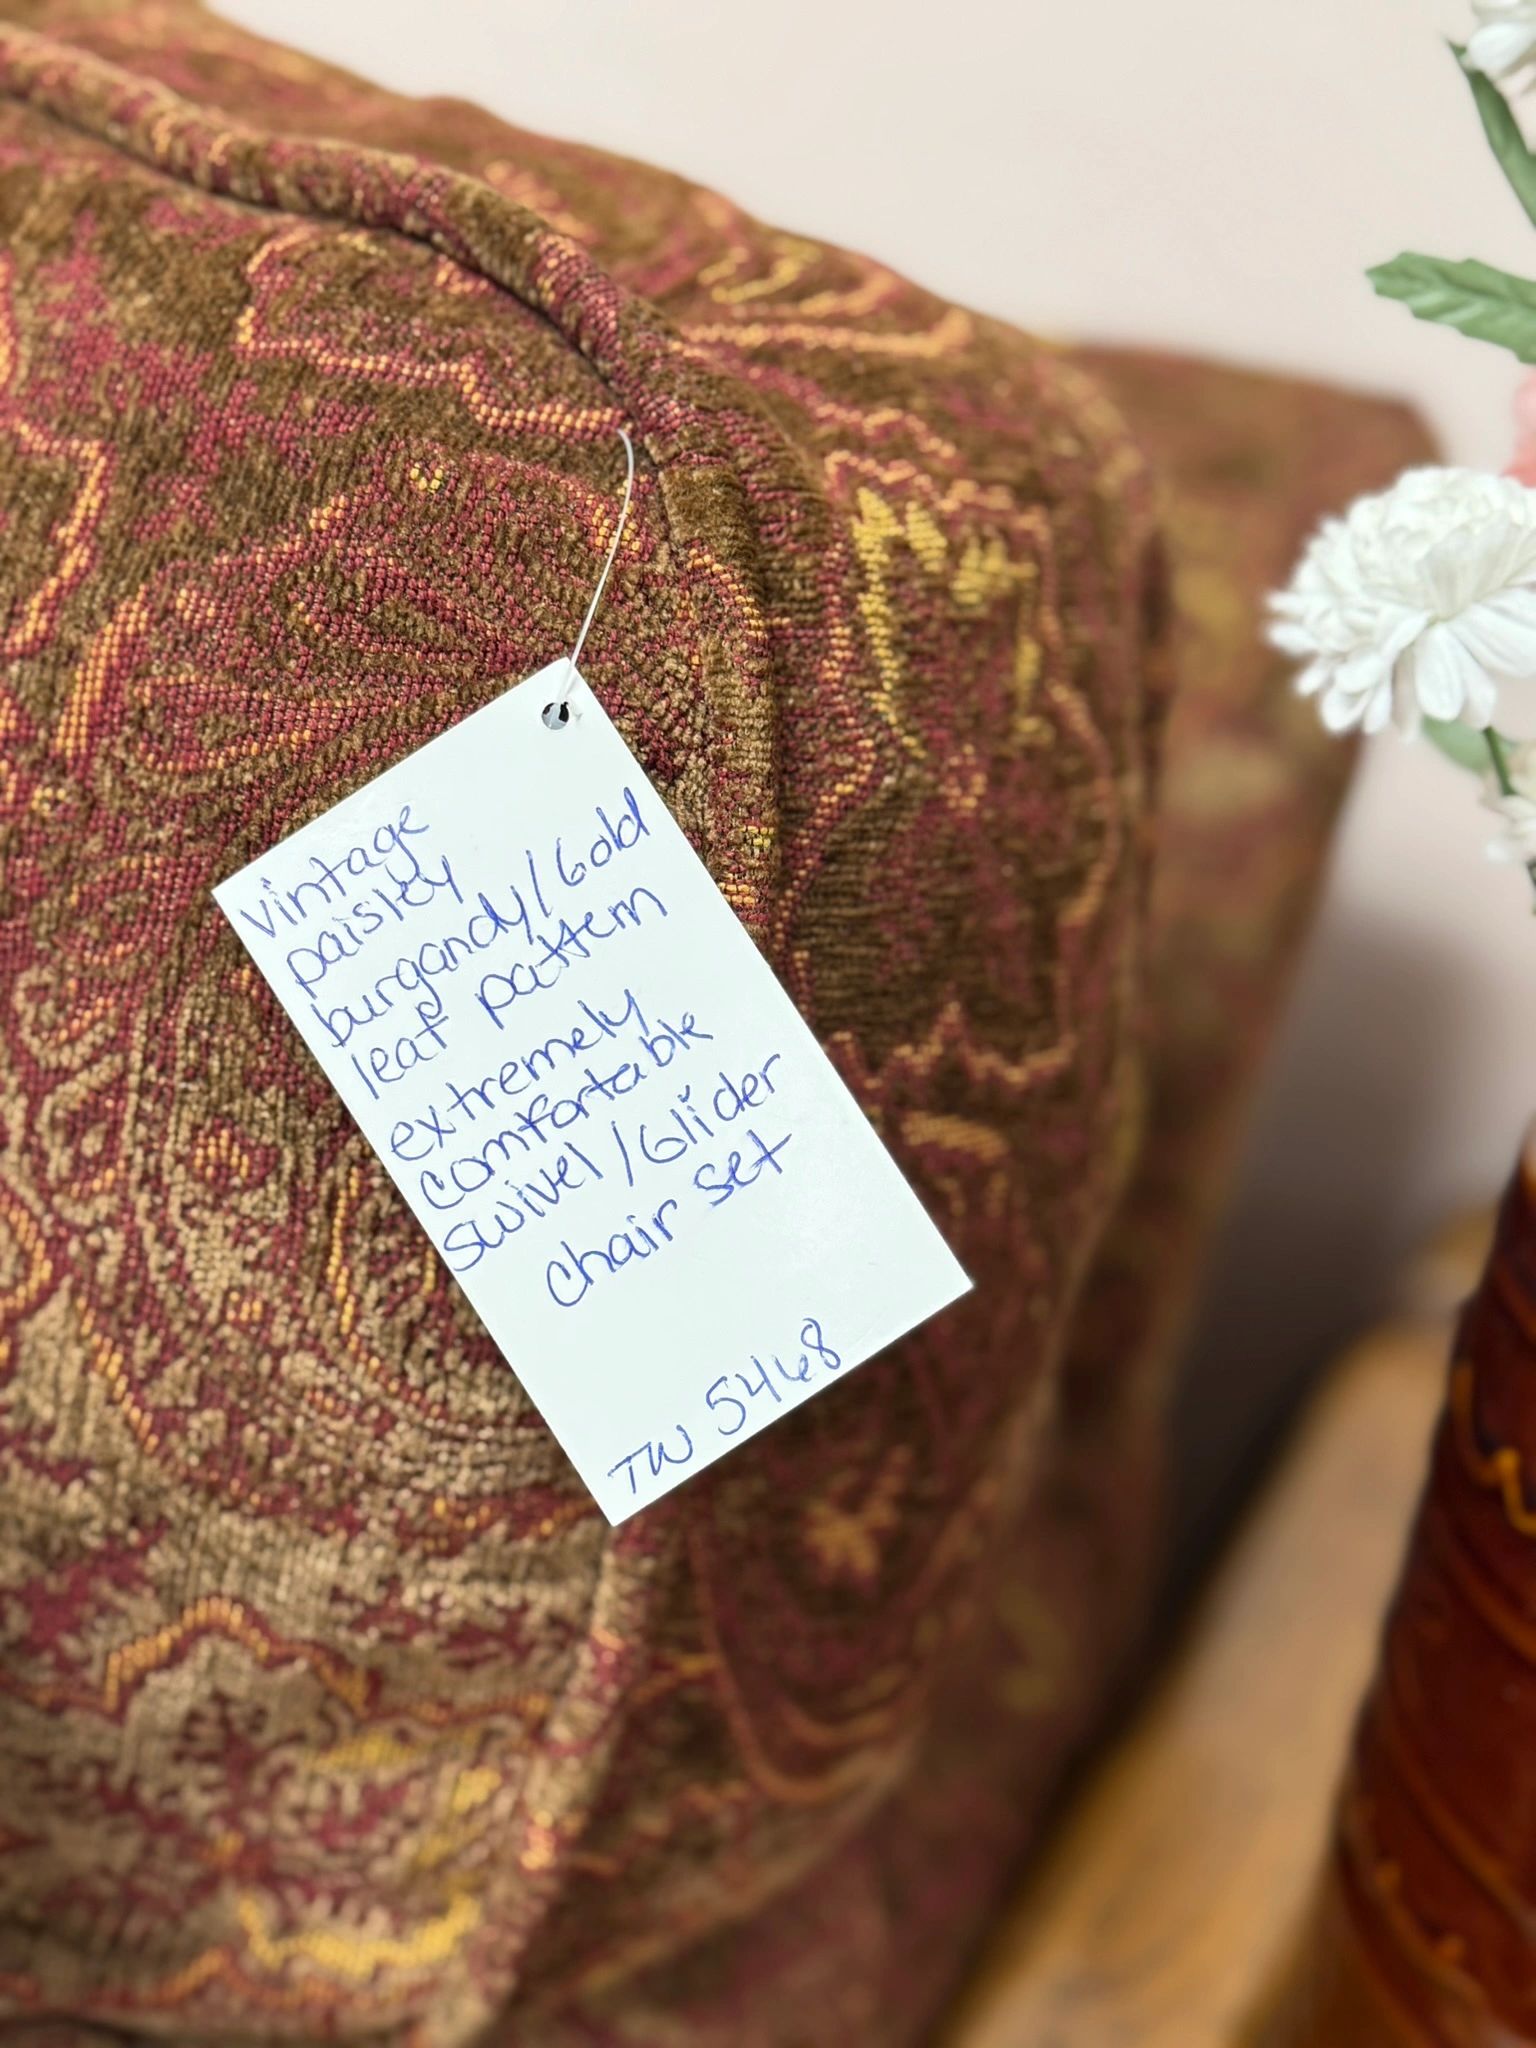 vintage
paisley
burgandy/Gold
leaf pattern
extremely
comfortable
swivel/Glider
chair set
TW 5468